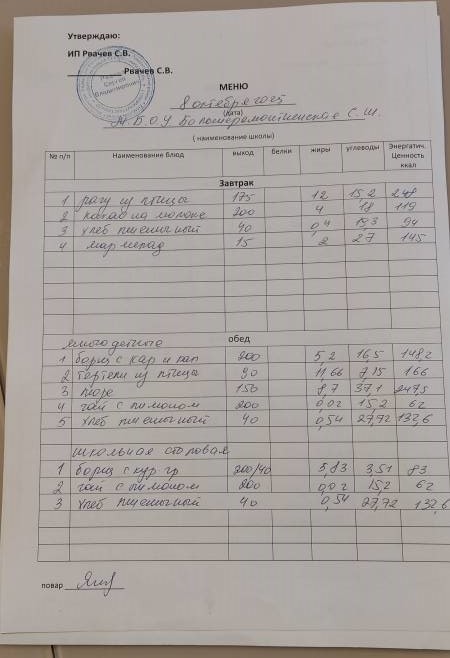 Утверждаю:
ИП Рвачев С.В.
Рвачев С.В.
МЕНЮ
8 октября 2025
(дата)
М.Б.О.У С.Ш.
( наименование школы)
№ п/п Наименование блюд выход белки жиры углеводы Энергатич. Ценность ккал
Завтрак
1 рагу из птицы 175 12 15,2 248
2 какао на молоке 200 4 18 119
3 хлеб пшеничный 40 0,4 19,3 94
4 мармелад 15 2 2,7 145
многодетные обед
1 борщ с кар и кап 200 5,2 16,5 148,2
2 тефтели из птицы 90 11,66 7,15 166
3 пюре 150 8,7 37,1 247,5
4 чай с лимоном 200 0,02 15,2 62
5 хлеб пшеничный 40 0,54 27,72 132,6
школьная столовая
1 борщ с кур гр 200/40 3,83 3,51 83
2 чай с лимоном 200 0,02 15,2 62
3 хлеб пшеничный 40 0,54 27,72 132,6
повар